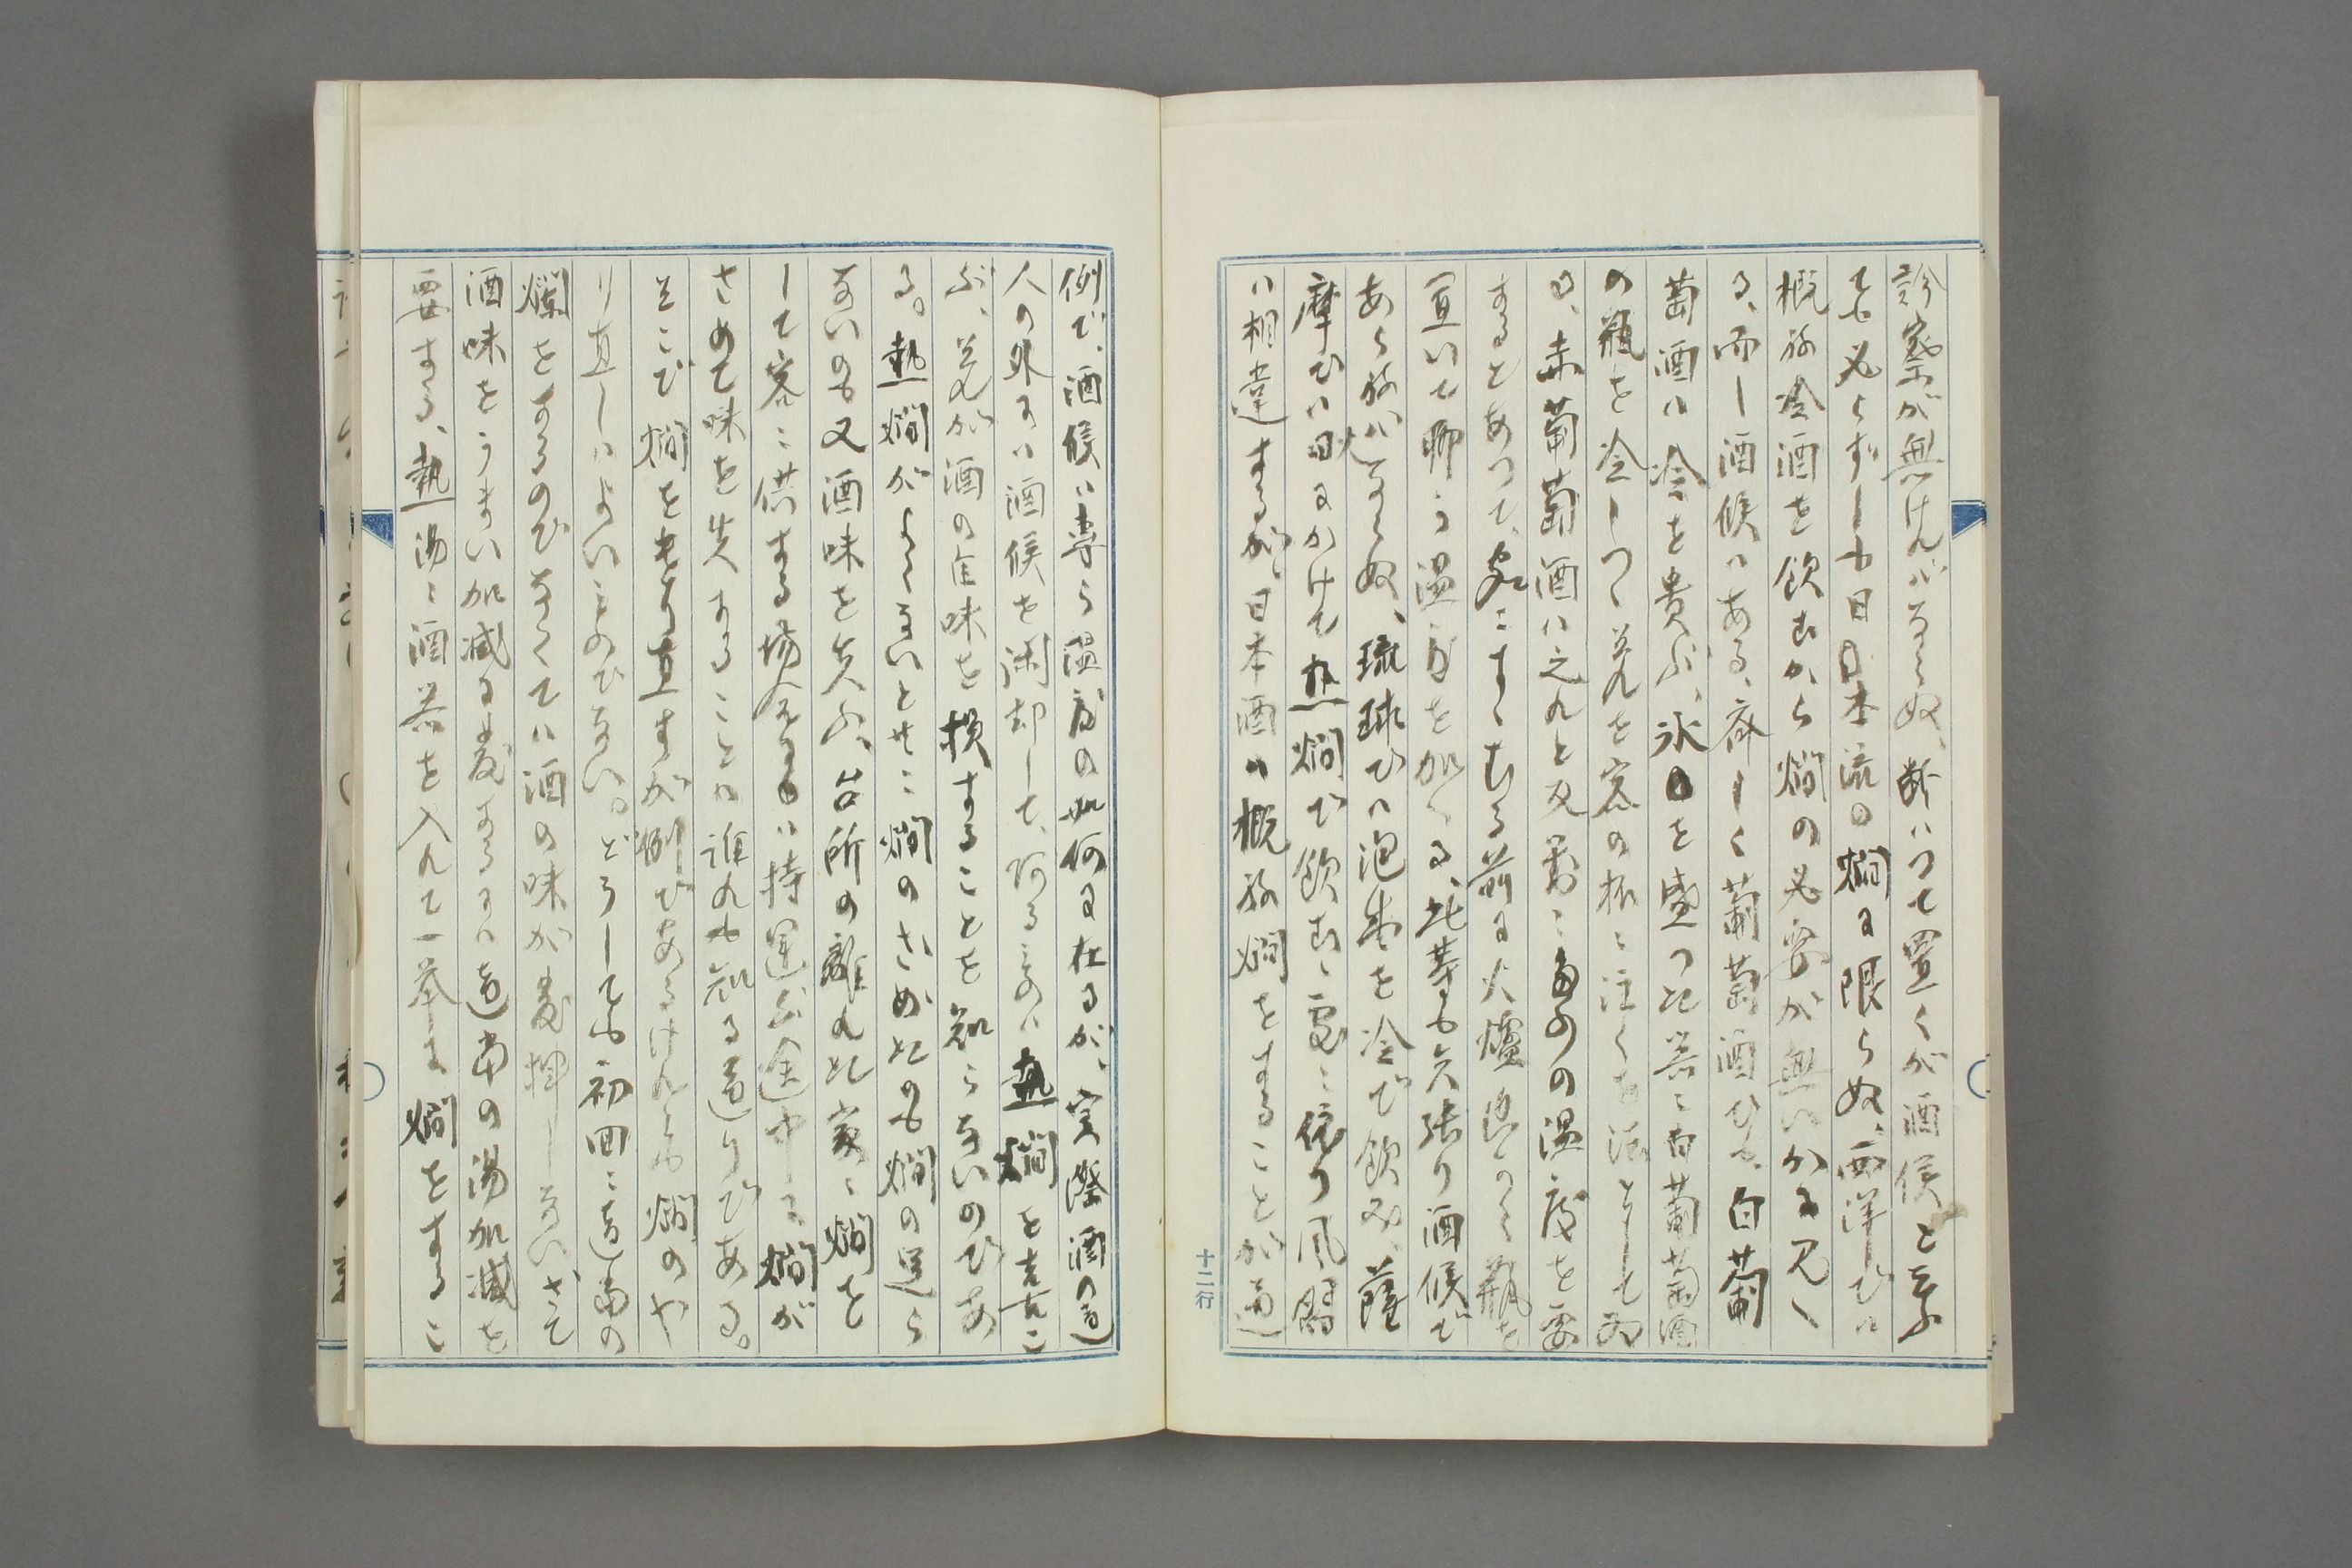 診察が無けんバならぬ、断ハつて置くが酒候と云ふ
ても必らずしも日日本流の燗に限らぬ、西洋でハ
概ね冷酒を飲むから燗の必要が無いかに見へ
る、而し酒候ハある、斉しく葡萄酒でも、白葡
萄酒ハ冷を貴ぶ、氷を盛つた器に白葡萄酒
の瓶を冷しつゝ之れを客の杯に注くを法として居
る、赤葡萄酒ハ之れと反対に多少の温度を要
するとあつて、客にすゝむる前に火爐の傍らに瓶を
置いて聊う温度を加へる、此等も矢張り酒候で
あらねバならぬ、琉球でハ泡盛を冷で飲み、薩
摩でハ火にかけて熱燗で飲む、処に依り風習
ハ相違するが、日本酒ハ概ね燗をすることが通
十二行
例で、酒候ハ専ら温度の如何に在るが、実際酒の通
人の外にハ酒候を閑却して、阿るものハ熱燗を喜ん
で、之れが酒の旨味を損することを知らないのであ
る。熱燗がよくないと共に燗のさめたのも燗の足ら
ないのも又酒味を失ふ、台所の離れた家に燗を
して客に供する場合などハ持運ぶ途中に燗が
さめて味を失することハ誰れも知る通りである。
そこで燗をもう直すが例であるけれども燗のや
り直しハよいものでない。どうしても初回に適当の
燗をするのでなくてハ酒の味が発揮しない、さて
酒味をうまい加減に発するにハ適当の湯加減を
要する、熱湯に酒器を入れて一挙に燗をするこ